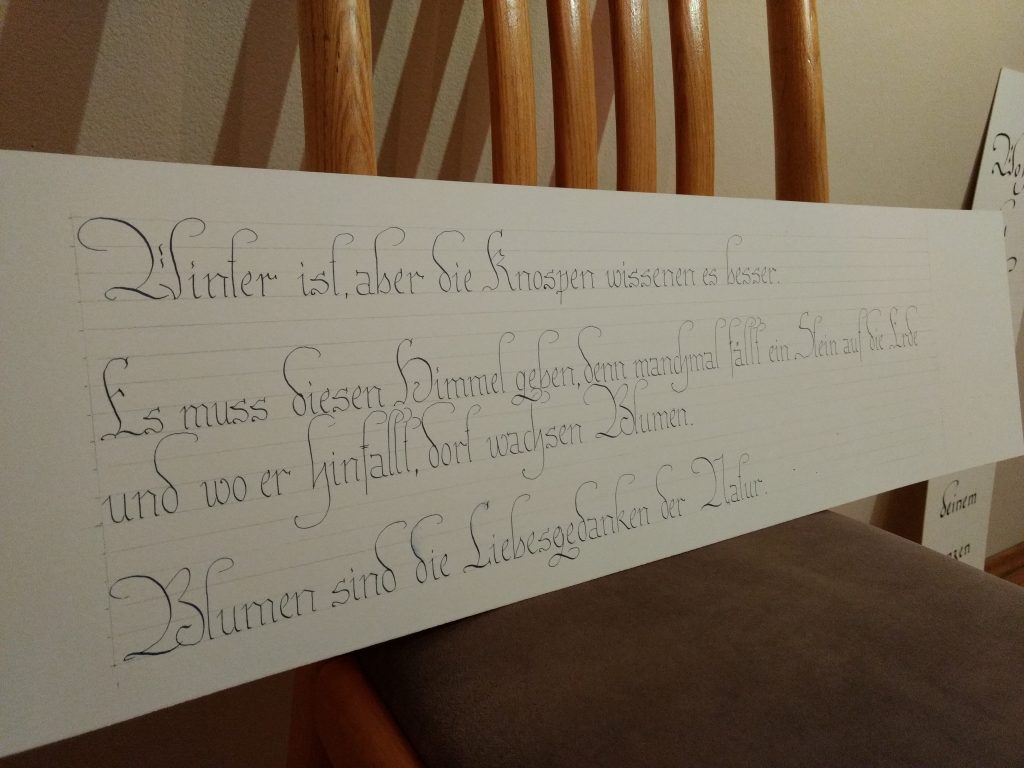 Winter ist, aber die Knospen wissenen es besser.
Es muss diesen Himmel geben, denn manchmal fällt ein Stein auf die Erde
und wo er hinfällt, dort wachsen Blumen.
Blumen sind die Liebesgedanken der Natur.
deinem